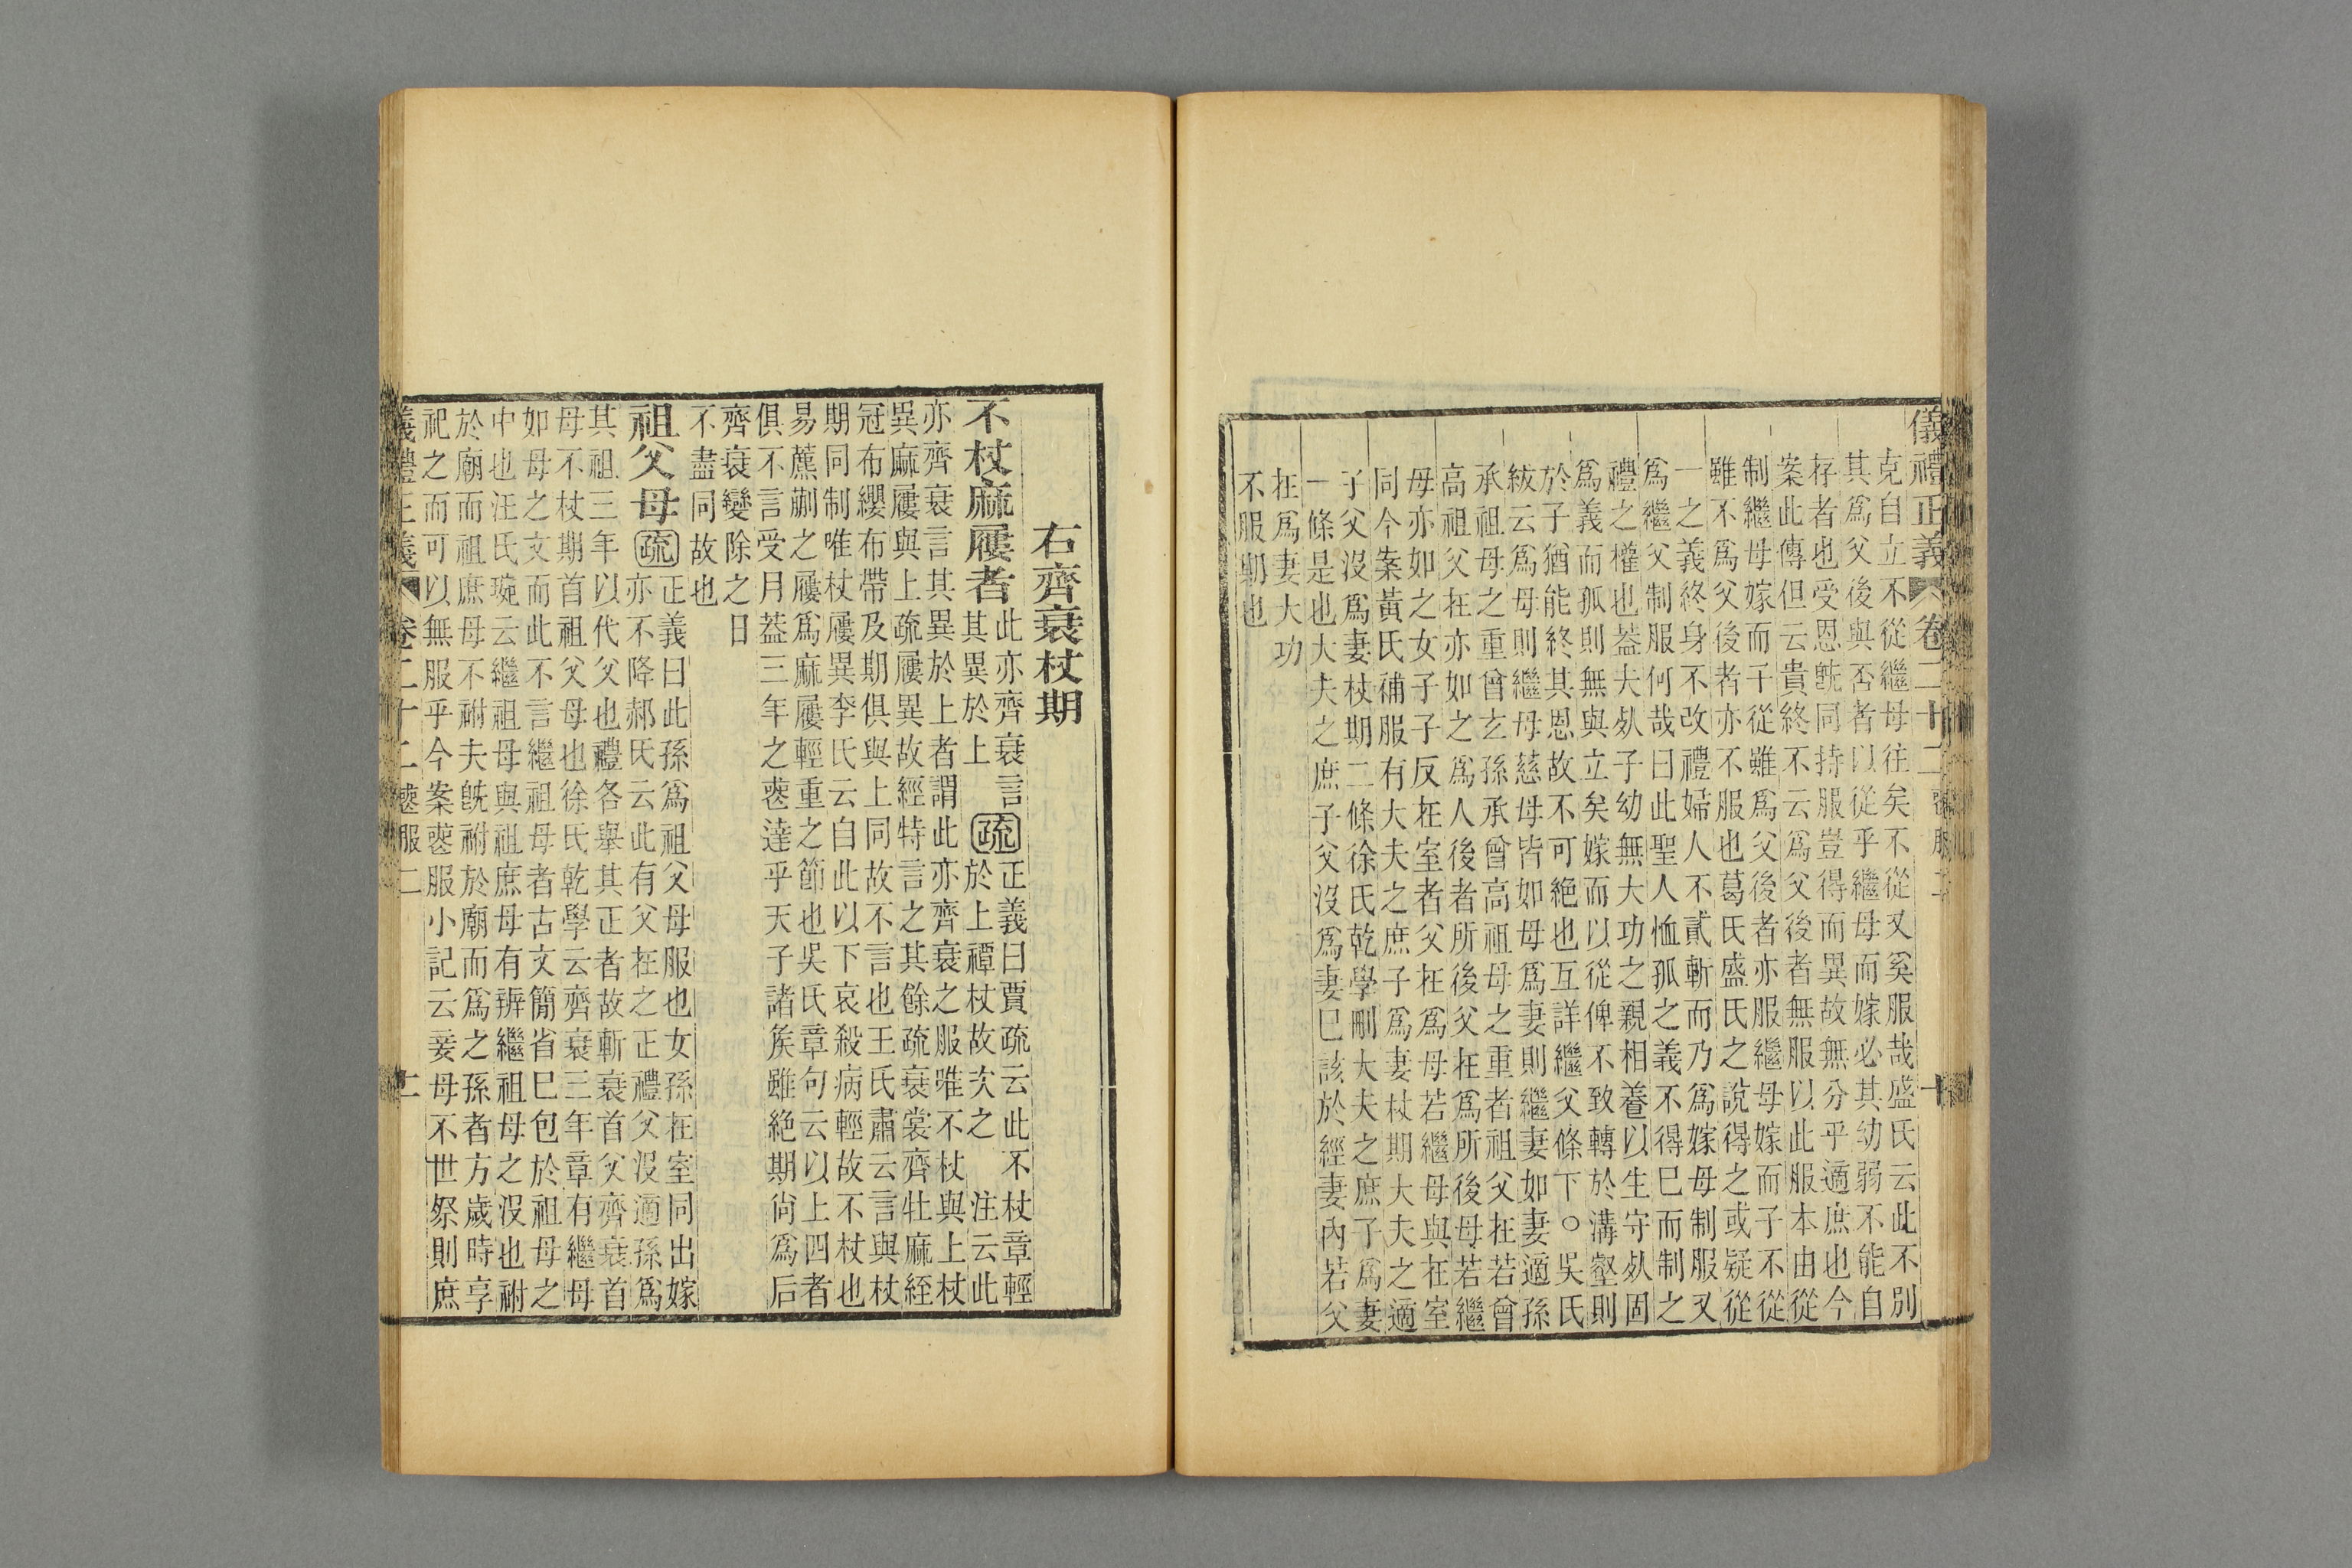 儀禮正義 卷二十二 喪服二 十
克自立不從繼母往矣不從又奚服哉盛氏云此不別
其爲父後與否者以從乎繼母而嫁必其幼弱不能自
存者也受恩旣同持服豈得而異故無分乎適庶也今
案此傳但云貴終不云爲父後者無服以此服本由從
制繼母嫁而子從雖爲父後者亦服繼母嫁而子不從
雖不爲父後者亦不服也葛氏盛氏之說得之或疑從
一之義終身不改禮婦人不貳斬而乃爲嫁母制服又
爲繼父制服何哉曰此聖人恤孤之義不得巳而制之
禮之權也葢夫歿子幼無大功之親相養以生守歿固
爲義而孤則無與立矣嫁而以從俾不致轉於溝壑則
於子猶能終其恩故不可絶也互詳繼父條下○吳氏
紱云爲母則繼母慈母皆如母爲妻則繼妻如妻適孫
承祖母之重曾玄孫承曾高祖母之重者祖父在若曾
高祖父在亦如之爲人後者所後父在爲所後母若繼
母亦如之女子子反在室者父在爲母若繼母與在室
同今案黃氏補服有大夫之庶子爲妻杖期大夫之適
子父沒爲妻杖期二條徐氏乾學刪大夫之庶子爲妻
一條是也大夫之庶子父沒爲妻巳該於經妻內若父
在爲妻大功
不服期也
右齊衰杖期
不杖麻屨者此亦齊衰言其異於上疏正義曰賈疏云此不杖章輕於上禫杖故次之 注云此
亦齊衰言其異於上者謂此亦齊衰之服唯不杖與上杖
異麻屨與上疏屨異故經特言之其餘疏衰裳齊牡麻絰
冠布纓布帶及期俱與上同故不言也王氏肅云言與杖
期同制唯杖屨異李氏云自此以下哀殺病輕故不杖也
易藨蒯之屨爲麻屨輕重之節也吳氏章句云以上四者
俱不言受月葢三年之喪達乎天子諸矦雖絶期尙爲后
齊衰變除之日
不盡同故也
祖父母疏正義曰此孫爲祖父母服也女孫在室同出嫁亦不降郝氏云此有父在之正禮父沒適孫爲
其祖三年以代父也禮各舉其正者故斬衰首父齊衰首
母不杖期首祖父母也徐氏乾學云齊衰三年章有繼母
如母之文而此不言繼祖母者古文簡省巳包於祖母之
中也汪氏琬云繼祖母與祖庶母有辨繼祖母之沒也祔
於廟而祖庶母不祔夫旣祔於廟而爲之孫者方歲時享
祀之而可以無服乎今案喪服小記云妾母不世祭則庶
義禮正義 卷二十二 喪服二 十一